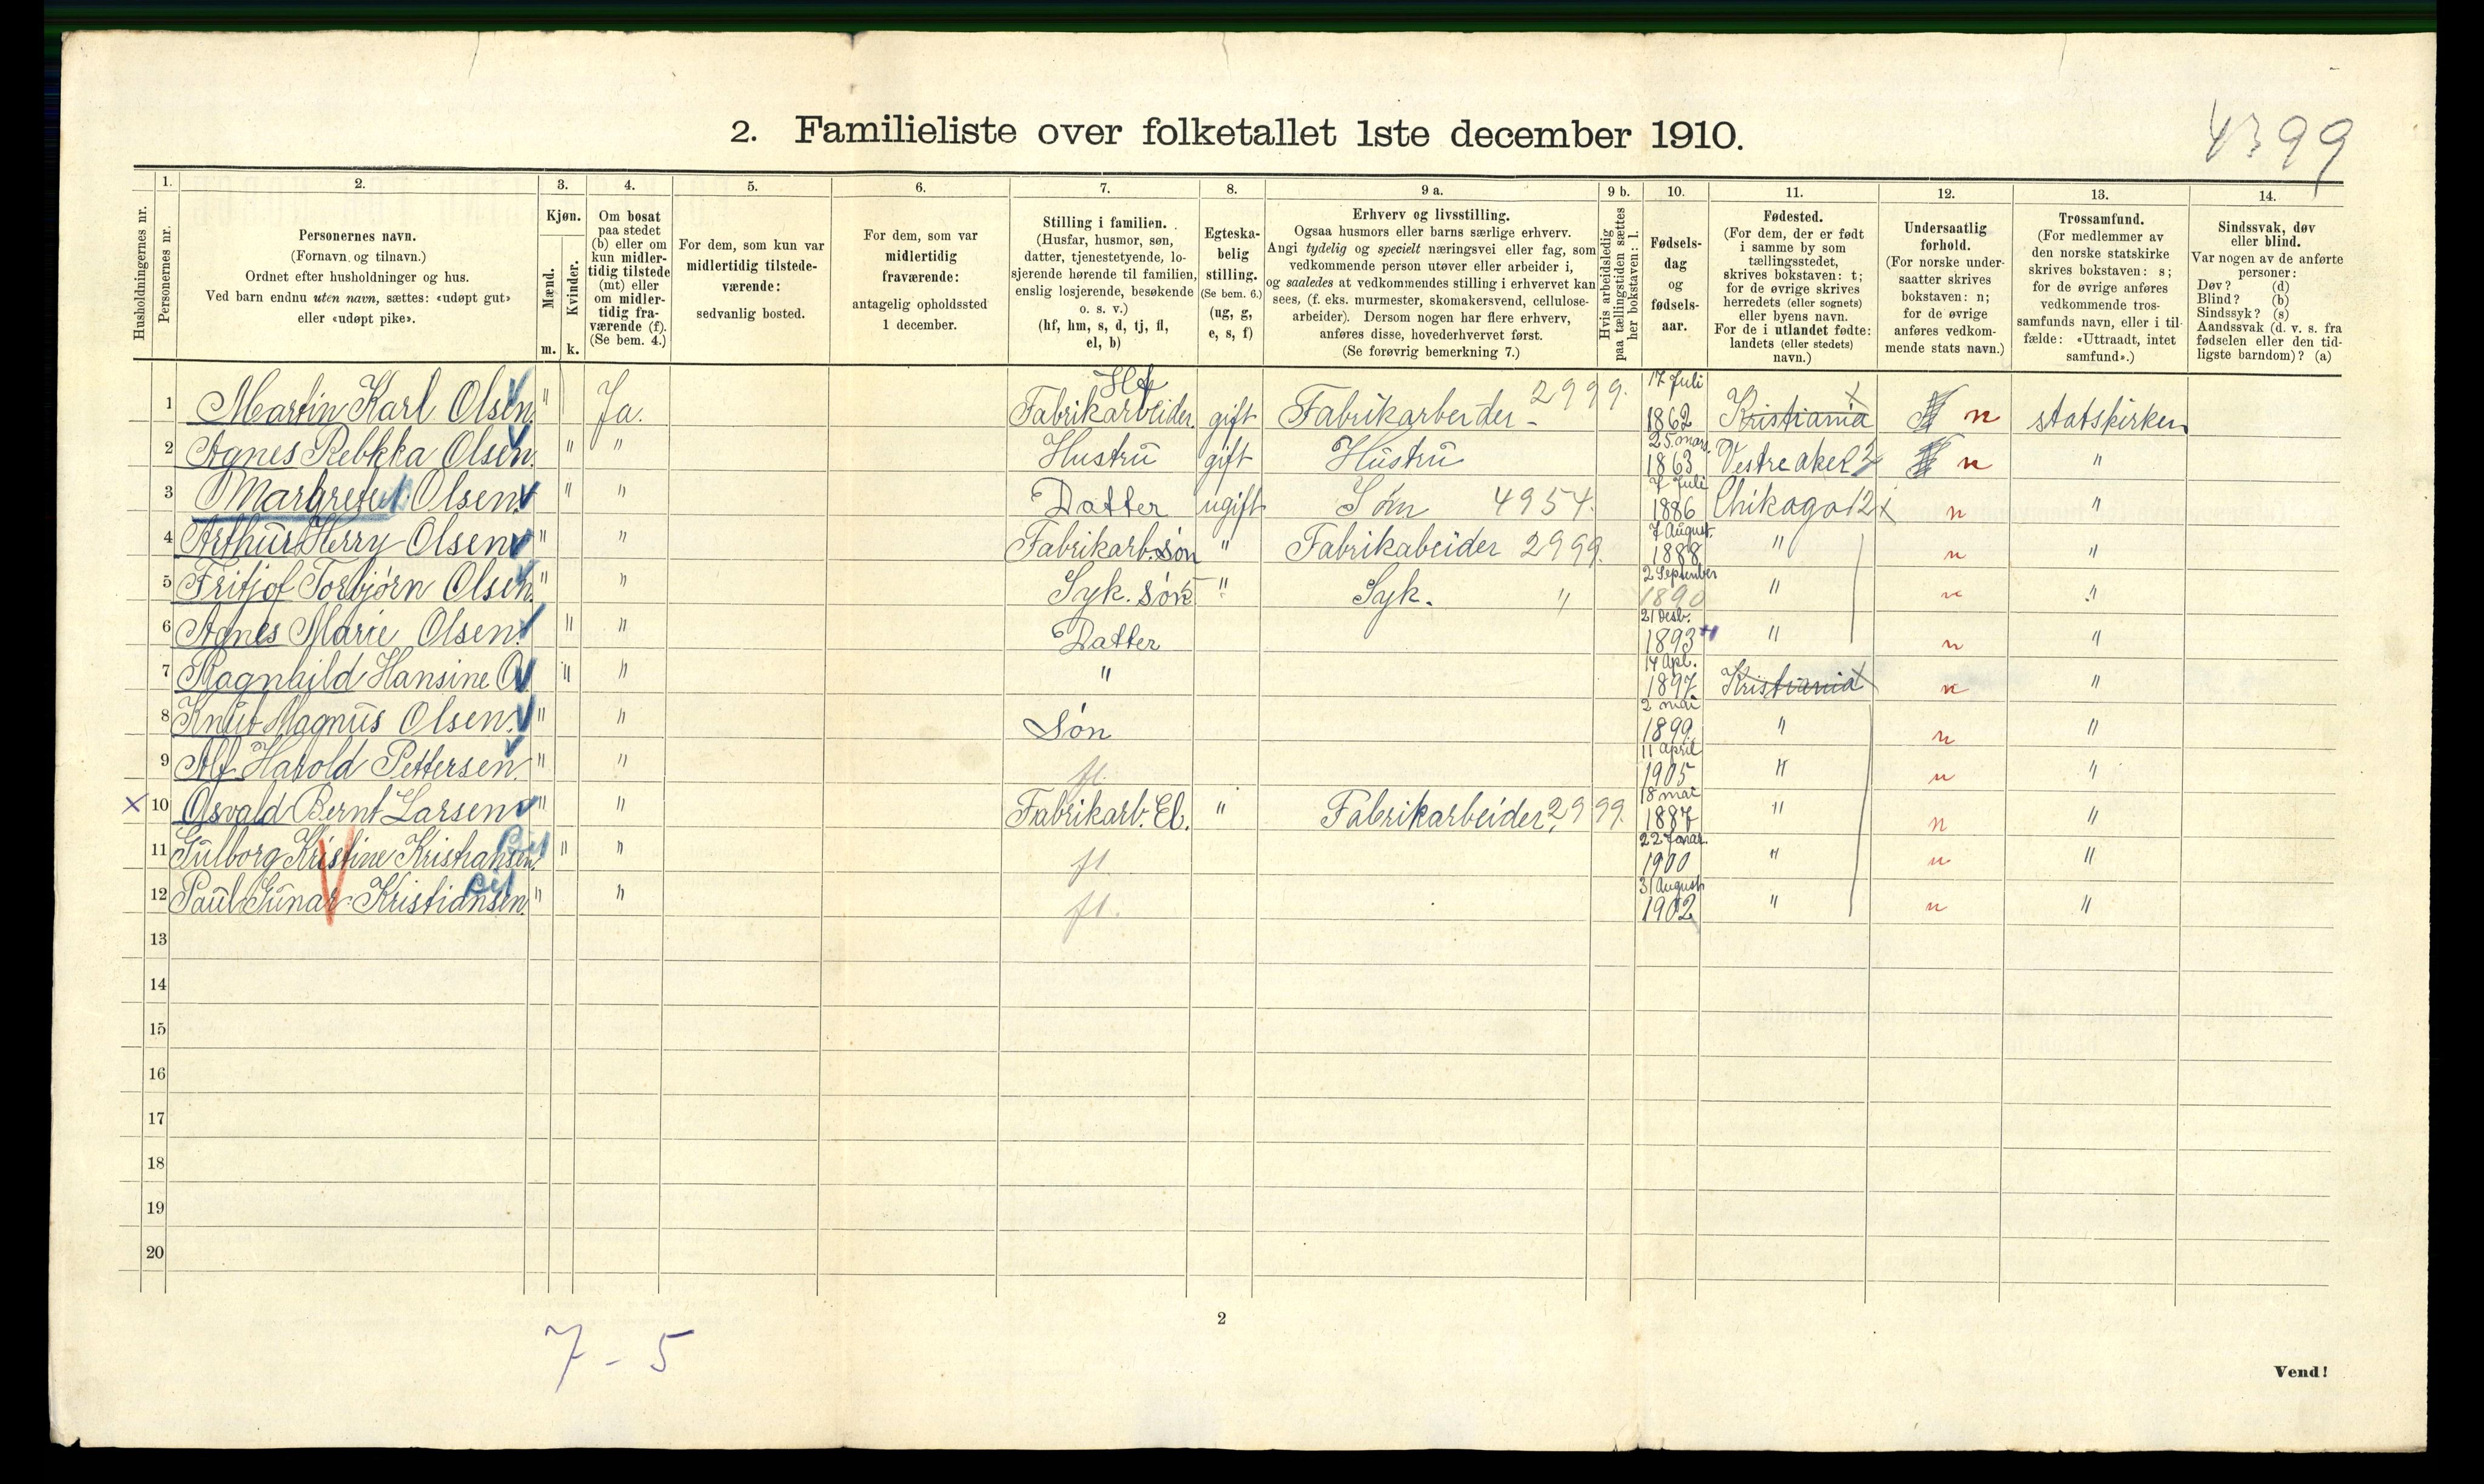 4399
2. Familieliste over folketallet 1ste december 1910.
Husholdningernes nr.
1. Personernes nr.
2. Personernes navn. (Fornavn og tilnavn.) Ordnet efter husholdninger og hus. Ved barn endnu uten navn, sættes: «udøpt gut» eller «udøpt pike».
3. Kjøn. Mænd. m. Kvinder. k.
4. Om bosat paa stedet (b) eller om kun midlertidig tilstede (mt) eller om midlertidig fraværende (f). (Se bem. 4.)
5. For dem, som kun var midlertidig tilstedeværende: sedvanlig bosted.
6. For dem, som var midlertidig fraværende: antagelig opholdssted 1 december.
7. Stilling i familien. (Husfar, husmor, søn, datter, tjenestetyende, losjerende hørende til familien, enslig losjerende, besøkende o. s. v.) (hf, hm, s, d, tj, fl, el, b)
8. Egteskabelig stilling. (Se bem. 6.) (ug, g, e, s, f)
9 a. Erhverv og livsstilling. Ogsaa husmors eller barns særlige erhverv. Angi tydelig og specielt næringsvei eller fag, som vedkommende person utøver eller arbeider i, og saaledes at vedkommendes stilling i erhvervet kan sees, (f. eks. murmester, skomakersvend, cellulosearbeider). Dersom nogen har flere erhverv, anføres disse, hovederhvervet først. (Se forøvrig bemerkning 7.)
9 b. Hvis arbeidsledig paa tællingstiden sættes her bokstaven: l.
10. Fødselsdag og fødselsaar.
11. Fødested. (For dem, der er født i samme by som tællingsstedet, skrives bokstaven: t; for de øvrige skrives herredets (eller sognets) eller byens navn. For de i utlandet fødte: landets (eller stedets) navn.)
12. Undersaatlig forhold. (For norske undersaatter skrives bokstaven: n; for de øvrige anføres vedkommende stats navn.)
13. Trossamfund. (For medlemmer av den norske statskirke skrives bokstaven: s; for de øvrige anføres vedkommende trossamfunds navn, eller i tilfælde: «Uttraadt, intet samfund».)
14. Sindssvak, døv eller blind. Var nogen av de anførte personer: Døv? (d) Blind? (b) Sindssyk? (s) Aandssvak (d. v. s. fra fødselen eller den tidligste barndom)? (a)
1 Martin Karl Olsen " Ja. Hf Fabrikarbeider. gift Fabrikarbeider - 2999. 17 Juli 1862 Kristiania n statskirken
2 Agnes Rebkka Olsen " " Hustru gift Hustru 25 mars 1863 Vestre aker 2 n "
3 Margrete Olsen " " Datter ugift Søm 4954. 7 Juli 1886 Chikago 12 n "
4 Arthur Herry Olsen " " Fabrikarb. søn " Fabrikabeider 2999. 7 August. 1888 " n "
5 Fritjof Torbjørn Olsen " " Syk. søn " Syk. " 2 September 1890 " n "
6 Agnes Marie Olsen " " Datter 21 Desb. 1893 " n "
7 Ragnhild Hansine O " " " 14 Apl. 1897 Kristiania n "
8 Knut Magnus Olsen. " " Søn 2 mai 1899 " n "
9 Alf Harold Pettersen " " fl 11 april 1905 " n "
x 10 Osvald Bernt Larsen " " Fabrikarb. El. " Fabrikarbeider 2999. 18 mai 1887 " n "
11 Gulborg Kristine Kristiansen. " " fl 22 Janar. 1900 " n "
12 Paul Gunar Kristiansen. " " fl. 31 August 1902 " n "
13
14
15
16
17
18
19
20
2
7 - 5
Vend!